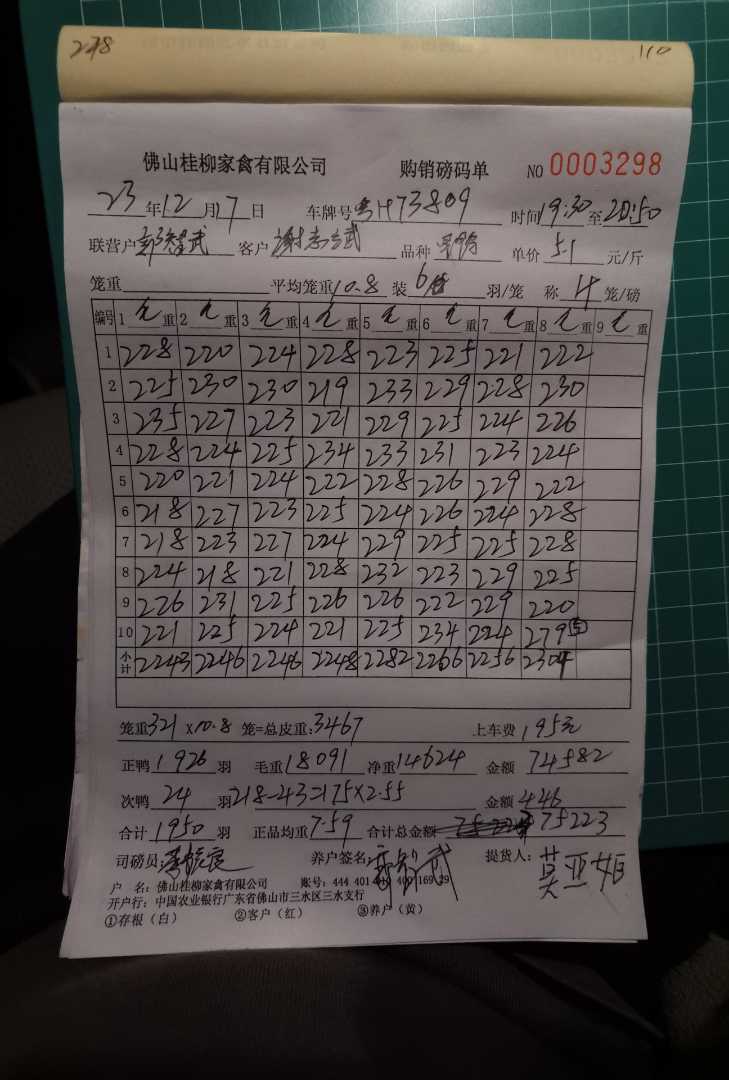 228 110
佛山桂柳家禽有限公司 购销磅码单 NO 0003298
23年12月17日 车牌号粤H73809 时间19:30至20:50
联营户 客户谢志武 品种 单价5.1元/斤
笼重 平均笼重10.8 装6 羽/笼 称4笼/磅
编号 1毛重 2毛重 3毛重 4毛重 5毛重 6毛重 7毛重 8毛重 9毛重
1 228 220 224 228 223 225 221 222
2 225 230 230 219 233 229 228 230
3 235 227 223 221 229 225 224 226
4 228 224 225 234 233 231 223 224
5 220 221 224 222 228 226 229 222
6 218 227 223 225 224 226 224 228
7 218 223 227 224 229 225 225 228
8 224 218 221 228 232 223 229 225
9 226 231 225 226 226 222 229 220
10 221 225 224 221 225 234 224 279⑤
小计 2243 2246 2246 2248 2282 2266 2256 2304
笼重321×10.8笼=总皮重:3467 上车费195元
正鸭1926羽 毛重18091 净重14624 金额74582
次鸭24羽218-43=175×2.55 金额446
合计1950羽 正品均重7.59 合计总金额 75223
司磅员: 养户签名: 提货人:莫亚娟
户 名:佛山桂柳家禽有限公司 账号:444 401
开户行:中国农业银行广东省佛山市三水区三水支行
①存根(白) ②客户(红) ③养户(黄)